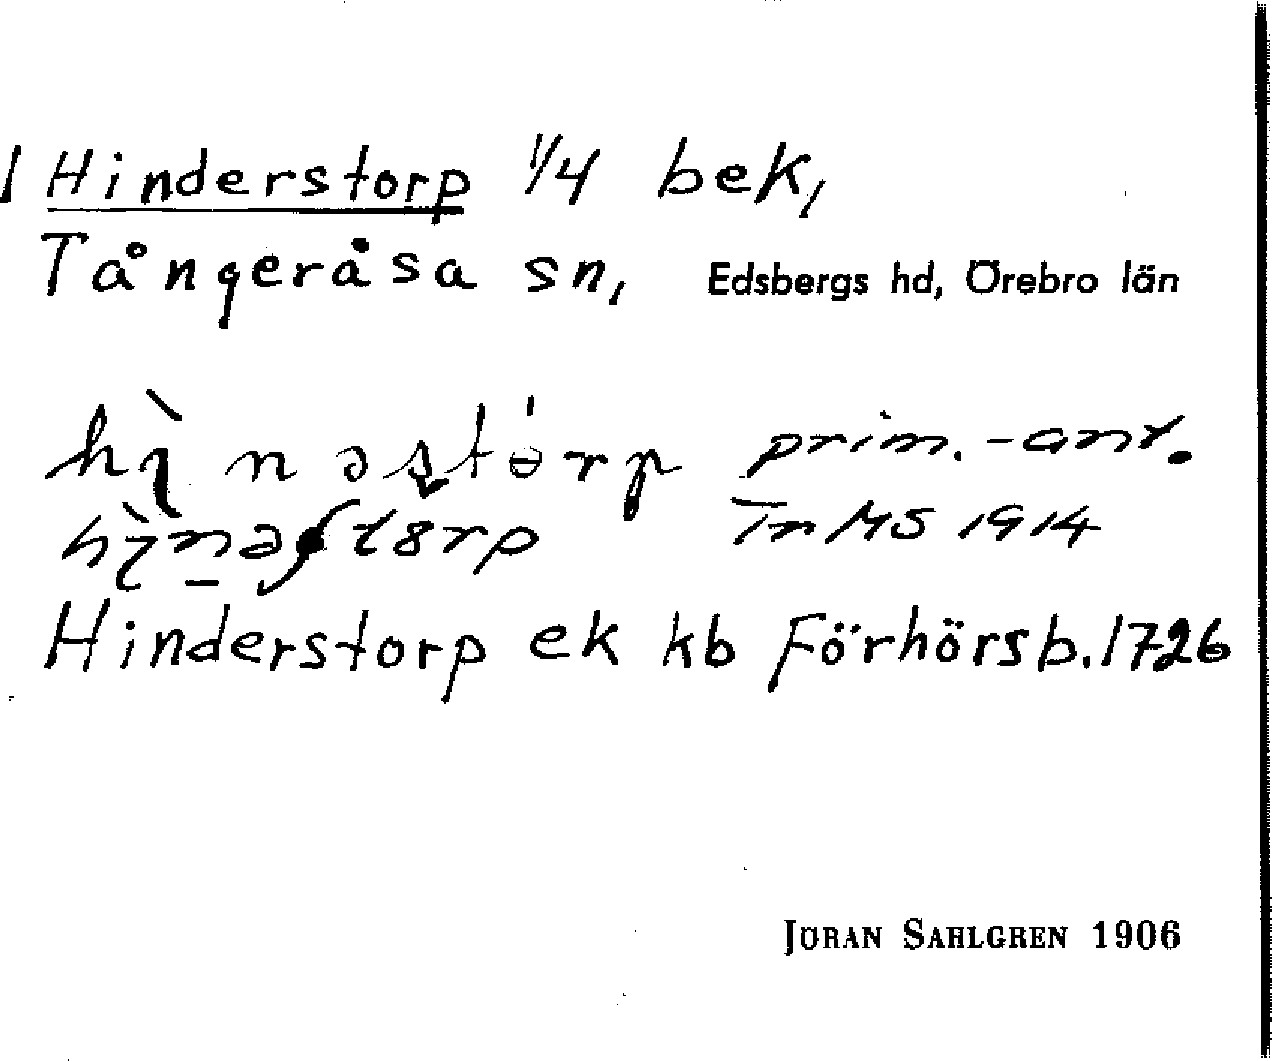 Hinderstorp 1/4 bek,
Tångeråsa sn, Edsbergs hd, Örebro län
prim.-ant.
In MS 1914
Hinderstorp ek kb Förhörsb. 1726
JÖRAN SAHLGREN 1906